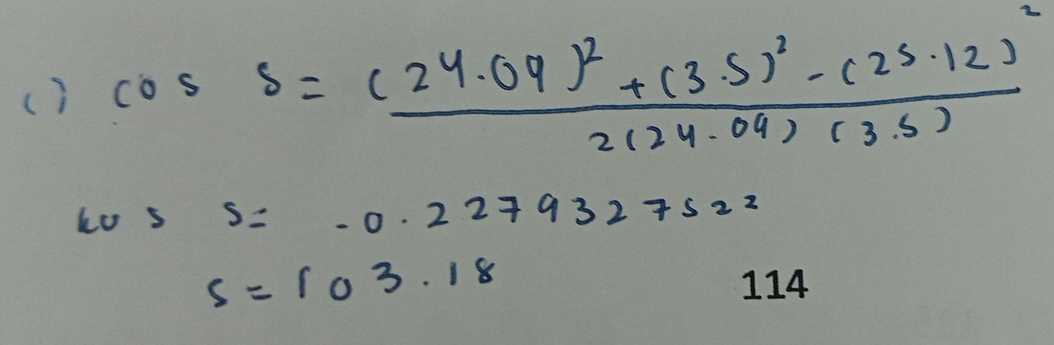 c) cos S = (24.09)² + (3.5)² - (25.12)²
2(24.09) (3.5)
kos S = -0.2279327522
S = 103.18
114